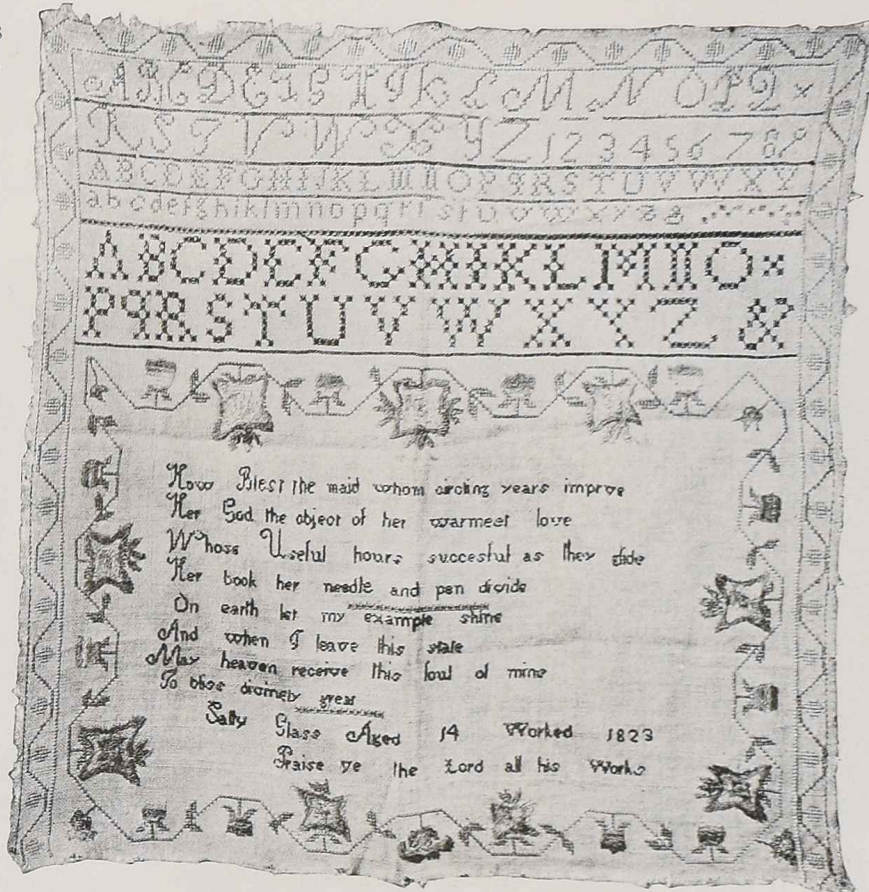 A B C D E F G H I K L M N O P Q
R S T V W X Y Z 1 2 3 4 5 6 7 8 9
A B C D E F G H I J K L M N O P Q R S T U V W X Y
a b c d e f g h i k l m n o p q r s t u v w x y z &
A B C D E F G H I K L M N O
P Q R S T U V W X Y Z &
How Blest the maid whom circling years improve
Her God the object of her warmest love
Whose Useful hours succesful as they glide
Her book her needle and pen divide
On earth let my example shine
And when I leave this state
May heaven receive this soul of mine
To bliss divinely great
Sally Glass Aged 14 Worked 1823
Praise ye the Lord all his Works